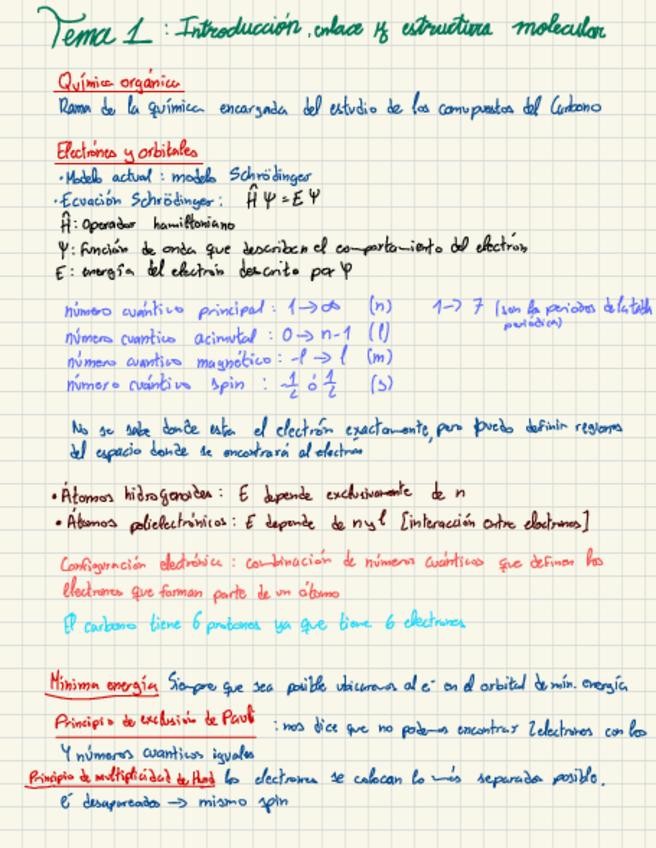 Tema 1 : Introducción, enlace y estructura molecular
Química orgánica
Rama de la química encargada del estudio de los compuestos del Carbono
Electrones y orbitales
· Modelo actual : modelo Schrödinger
· Ecuación Schrödinger : Ĥ Ψ = E Ψ
Ĥ : Operador hamiltoniano
Ψ : Función de onda que describen el comportamiento del electrón
E : energía del electrón descrito por Ψ
número cuántico principal : 1 → ∞ (n) 1 → 7 (son los periodos de la tabla
periódica)
número cuantico acimutal : 0 → n-1 (l)
número cuantico magnético : -l → l (m)
número cuántico spin : -1/2 ó 1/2 (s)
No se sabe donde esta el electrón exactamente, pero puedo definir regiones
del espacio donde se encontrará al electron
• Átomos hidrogenoides : E depende exclusivamente de n
• Átomos polielectrónicos : E depende de n y l [interacción entre electrones]
Configuración electrónica : combinación de números cuánticos que definen los
electrones que forman parte de un átomo
El carbono tiene 6 protones ya que tiene 6 electrones
Mínima energía Siempre que sea posible ubicaremos al e⁻ en el orbital de mín. energía
Principio de exclusión de Pauli : nos dice que no podemos encontrar 2 electrones con los
4 números cuanticos iguales
Principio de multiplicidad de Hund los electrones se colocan lo más separados posible.
e⁻ desapareados → mismo spin